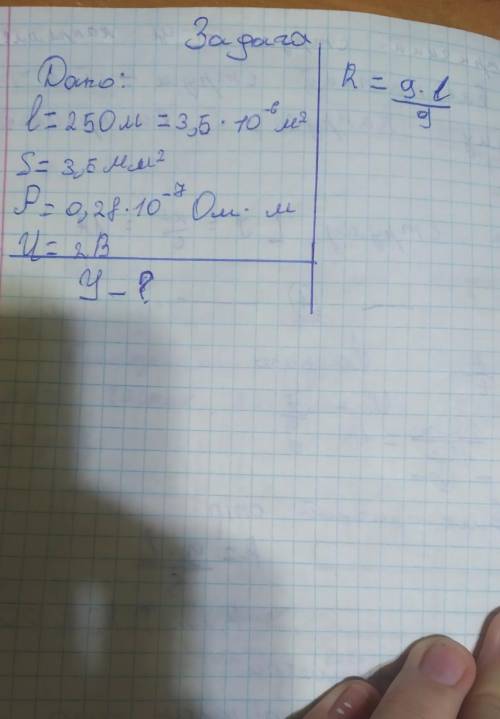 Задача
Дано:
l = 250 м = 3,5 · 10⁻⁶ м²
S = 3,5 мм²
ρ = 0,28 · 10⁻⁷ Ом · м
U = 2 В
У – ?
R = 9 · l / 9